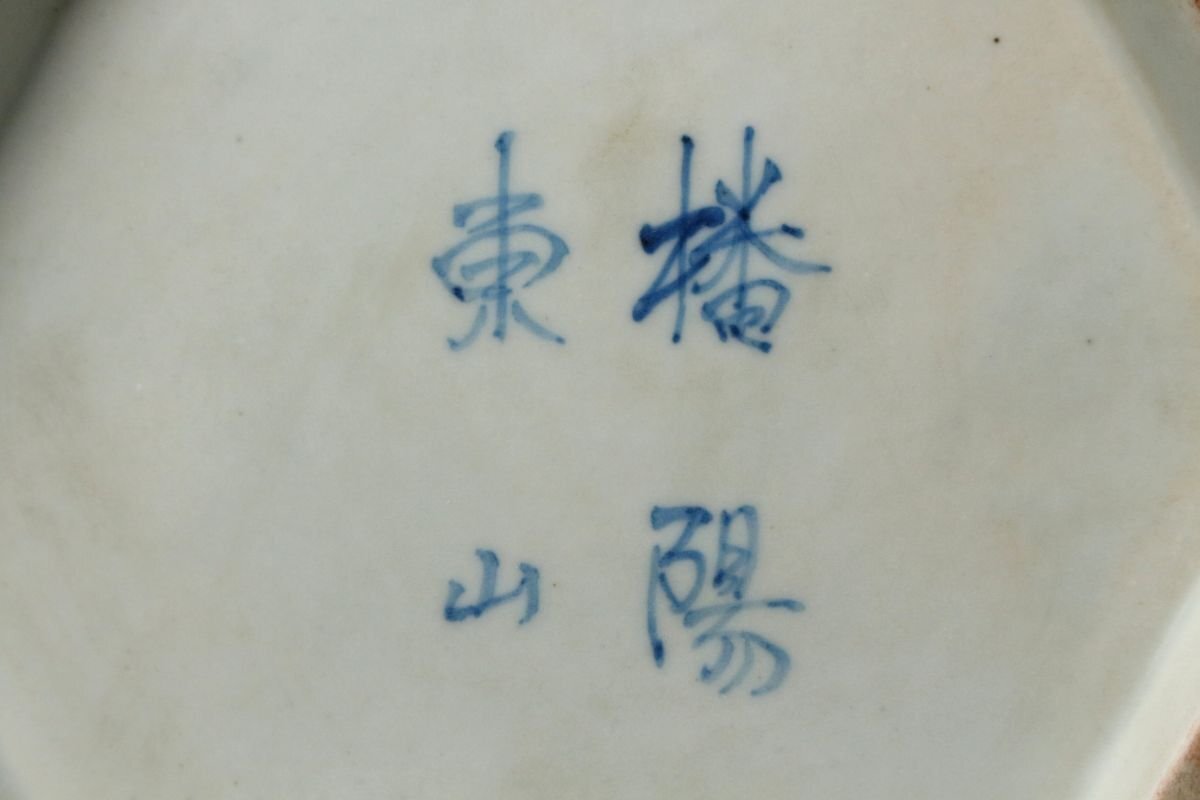 播陽
東山